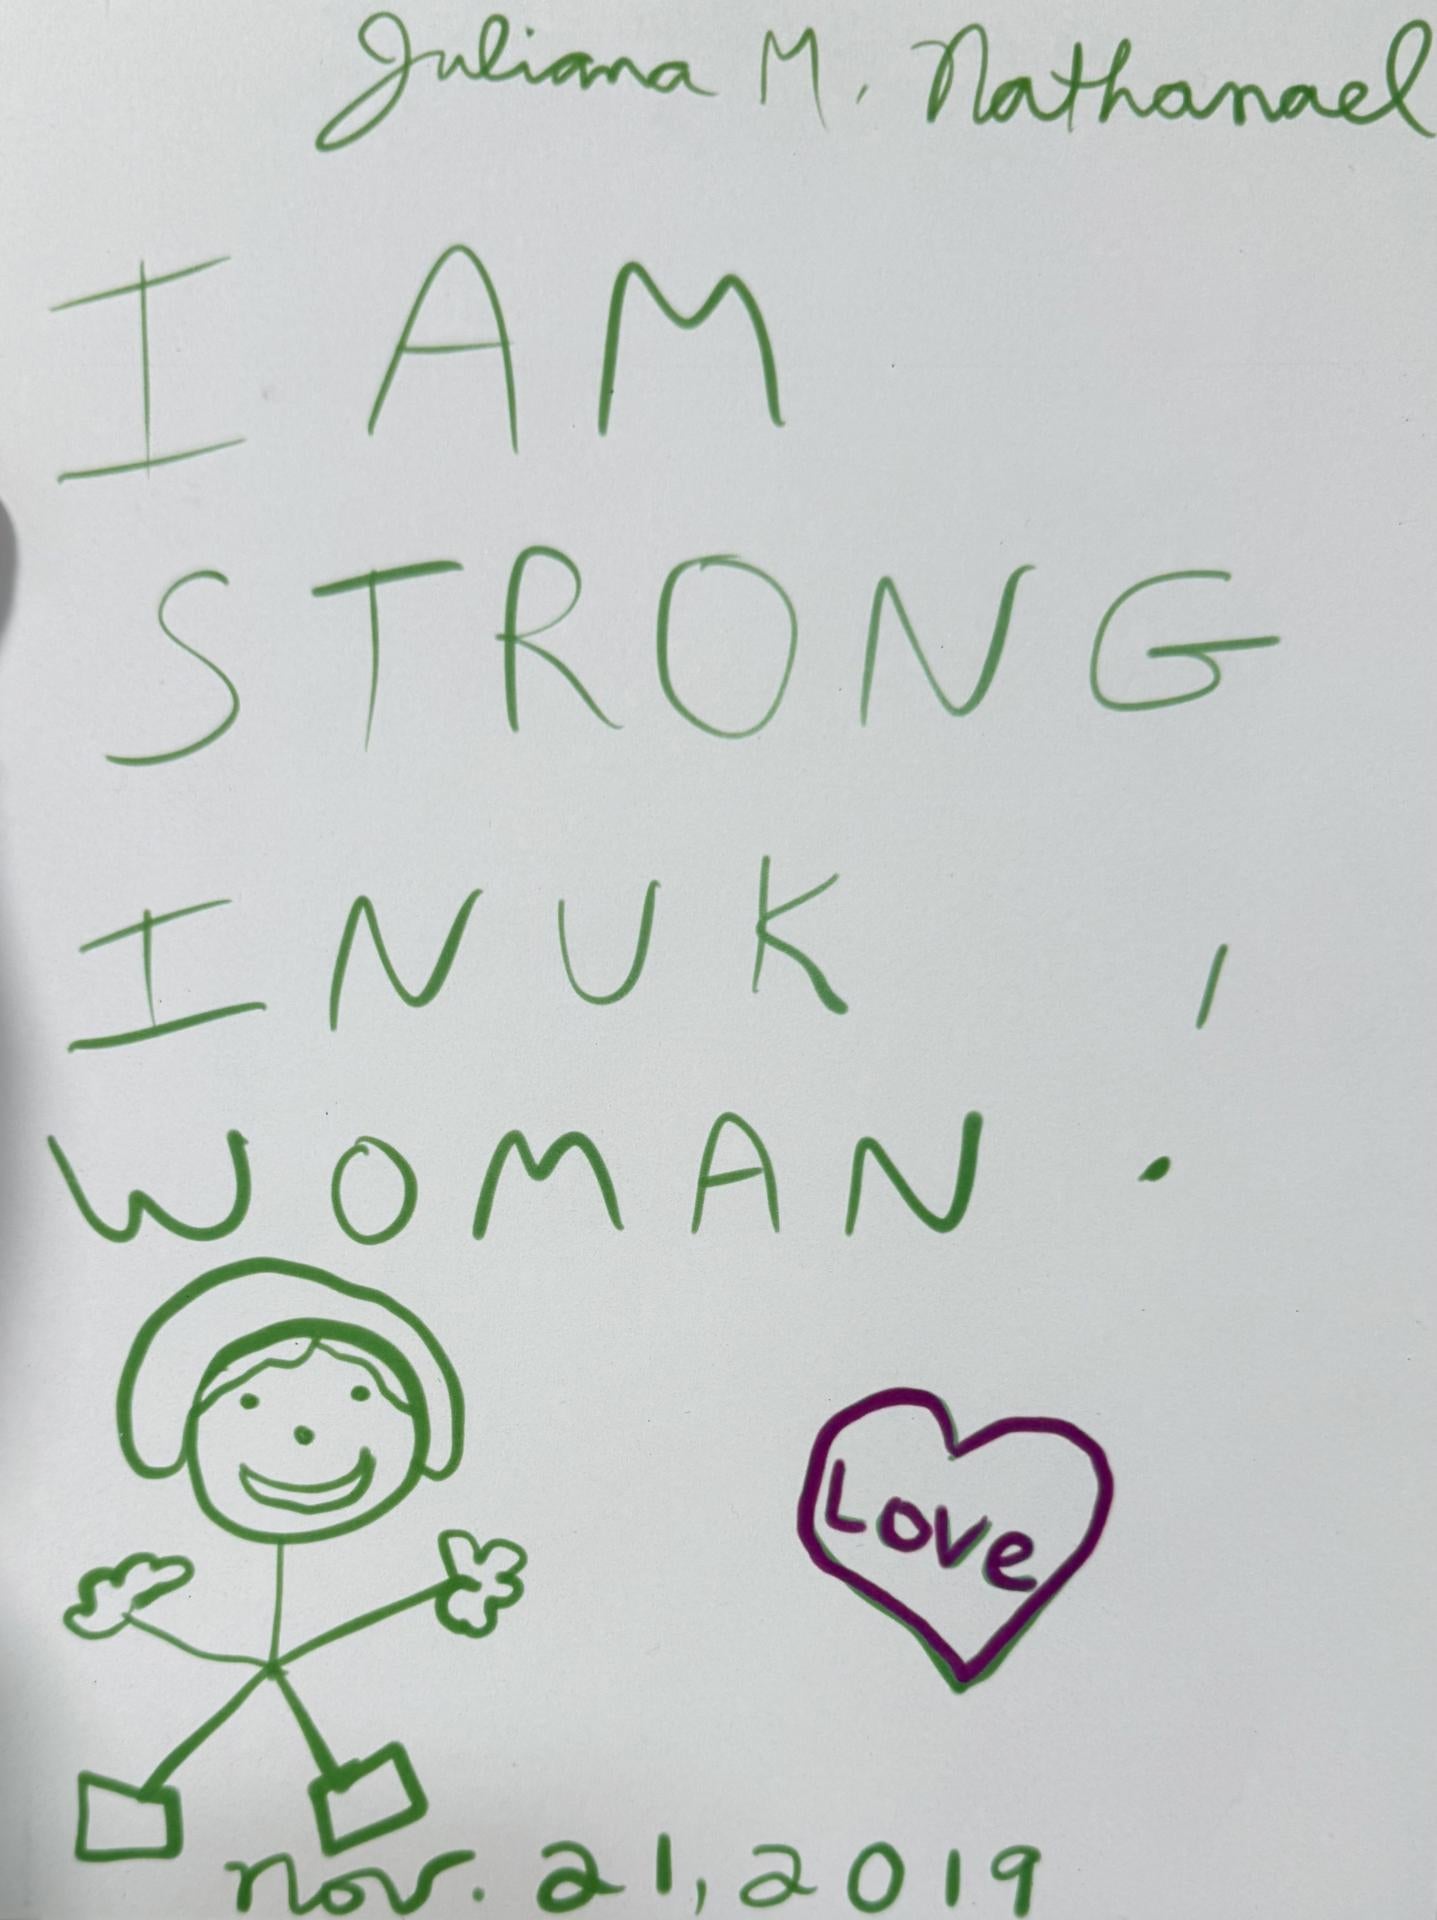 Juliana M. Nathanael
I AM
STRONG
INUK
WOMAN!
Love
nov. 21, 2019